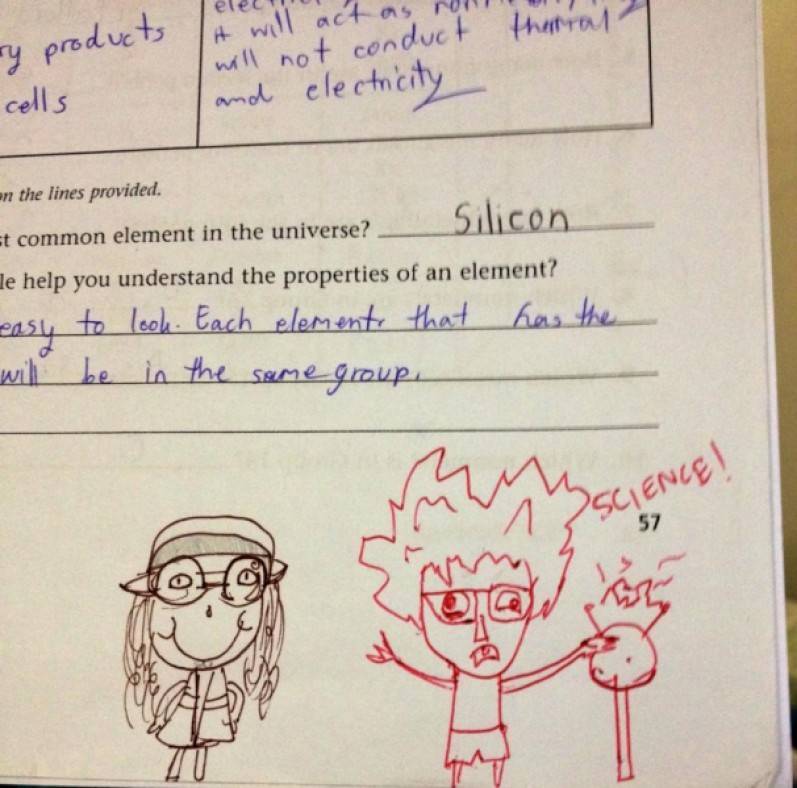 it will act as
ry products will not conduct thermal
cells and electricity
on the lines provided.
st common element in the universe? Silicon
le help you understand the properties of an element?
easy to look. Each element that has the
will be in the same group.
SCIENCE!
57